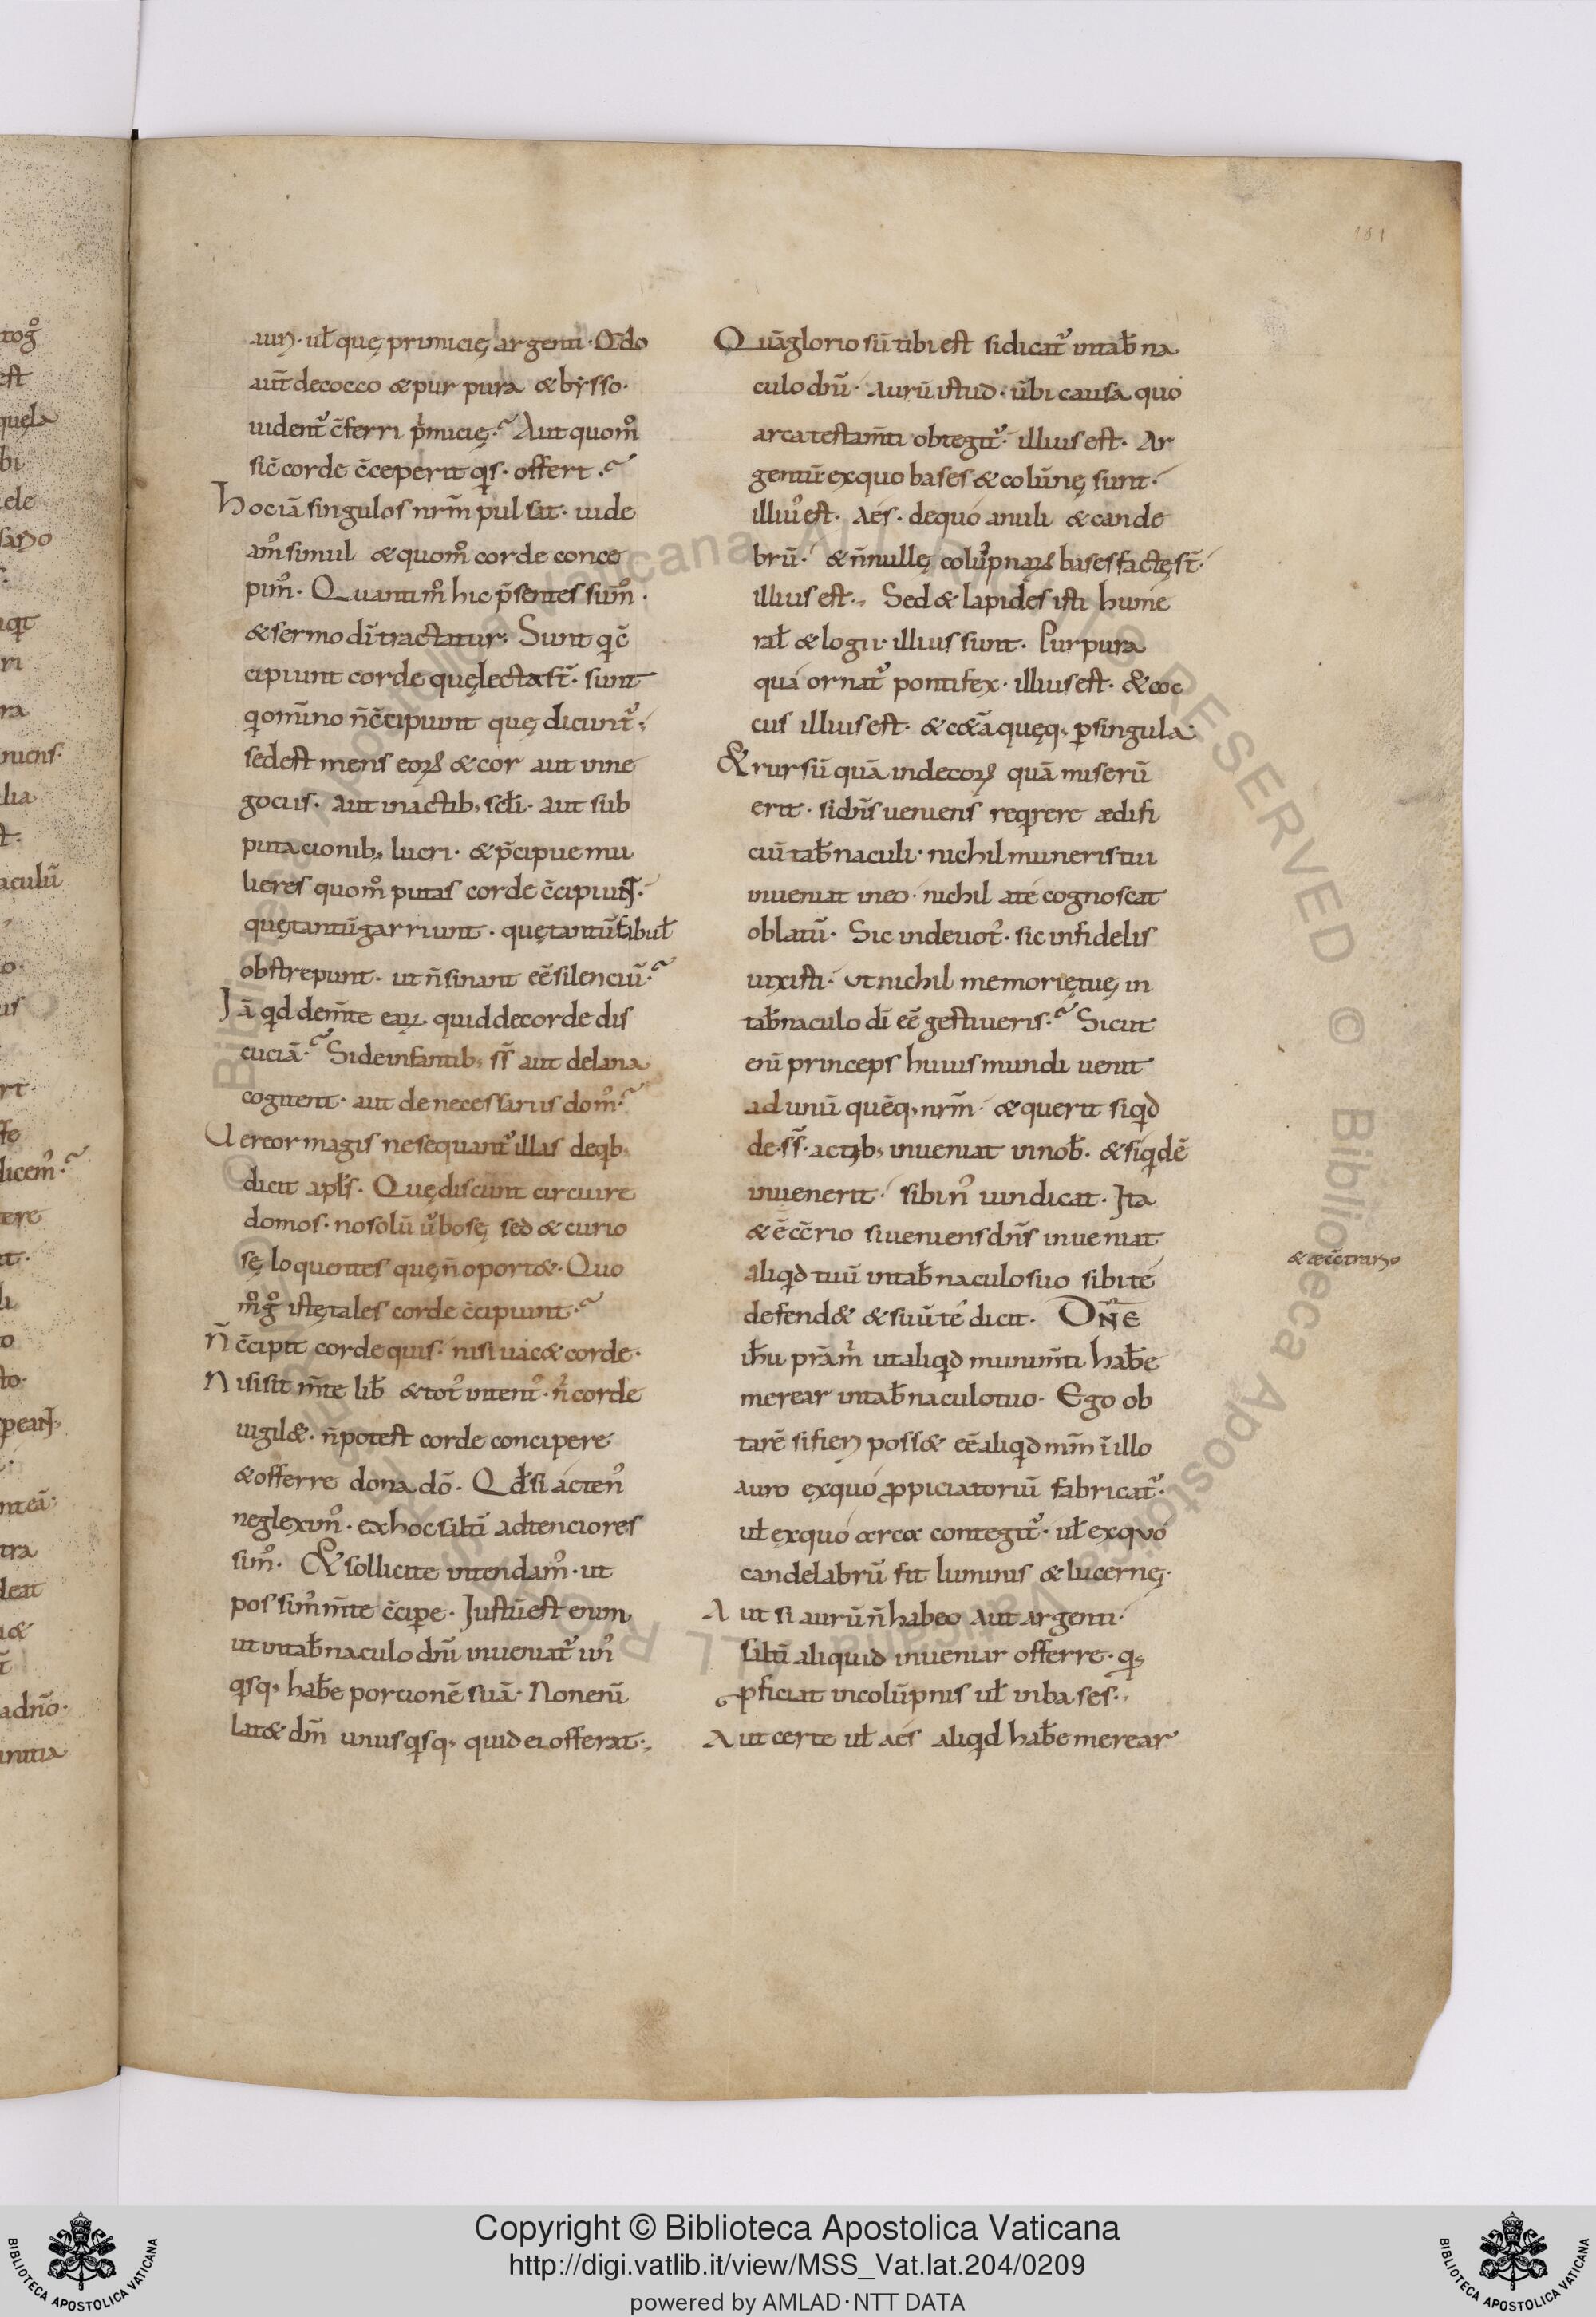 101
aurı. ul̄ quę primicię argenti. Q̄do
aut̄ decocco & purpura & bysso.
uident̄ c̄ferri p̄micię. Aut quom̊
sic̄ corde c̄ceperit q̄s. offert.
hoc iā singulos nrm̄ pulsat. uide
am̓ simul & quom̊ corde conce
pim̓. Quantim̊ hic p̄sentes sum̓.
& sermo dī tractatur. Sunt q̄ c̄
cipiunt corde quę lecta st̄. sunt
q̄ omīno n̄ c̄cipiunt quę dicunt̄.
sed est mens eoꝝ & cor aut inne
gocus. aut in actib; sc̄li. aut sub
putacionib; lucri. & p̄cipue mu
lieres quom̊ putas corde c̄cipiunt.
quę tantū garriunt. quę tantū fabul̄
obstrepunt. ut n̄ sinant eē silenciū.
Jā q̄d dem̄te eaꝝ. quid de corde dis
cuciā. Si de infantib; ss̄ aut de lana
cogitent. aut de necessariis dom̓.
Uereor magis ne sequant̄ illas deq̄b;
dicit apl̄s. Quę discunt circuire
domos. no solū u̓bosę sed & curio
sę loquentes quę n̄ oport&. Quo
m̊ g̊ istę tales corde c̄cipiunt.
N̄ c̄cipit corde quis. nisi uac& corde.
Nisi sit m̄te lib̄ & tot̓ intent̓. n̄ corde
uigil&. n̄ potest corde concipere
& offerre dona dō. Qd̄ si acten̓
neglexim̓. ex hoc saltī adtenciores
sim̓. & sollicite intendam̓. ut
possim̓ m̄te c̄cipe. Justū est enim
ut in tab̄naculo dn̄i inueniat̄ un̓
q̄sq; hab̄e porcionē suā. Non enī
lat& dm̄ unusq̄sq; quid ei offerat.
Quā gloriosū tibi est si dicat̄ in tab̄na
culo dn̄i. aurū istud. ūbi causa quo
arca testam̄ti obtegit̄. illius est. Ar
gentū ex quo bases & colūnę sunt.
illiu̓ est. Aes. de quo anuli & cande
brū. & n̄nullę colūpnaꝝ bases factę st̄.
illius est. Sed & lapides isti hume
ral̄ & logii illius sunt. Purpura
qua ornat̄ pontifex. illius est. & coc
cus illius est. & c&ā quęq; p̄ singula
& rursū quā indecoꝝ quā miserū
erit. si dn̄s ueniens req̄rere ædifi
ciū tab̄naculi. nichil muneris tui
inueniat in eo. nichil a te cognoscat
oblatū. Sic indeuot̓. sic infidelis
uixisti. ut nichil memorię tuę in
tab̄naculo dī eē gestiueris. Sicut
enī princeps huius mundi uenit
ad unū quēq; nrm̄. & querit siq̄d
de ss̄. actib; inueniat in nob̄. & siq̄dē
inuenerit. sibi n̓ uindicat. Ita
& ē c̄c̄rio si ueniens dn̄s inueniat
aliq̄d tuū in tab̄naculo suo sibi te
defend& & suū te dicit. Dn̄e
ih̄u prā m̄ ut aliq̄d munim̄ti hab̄e
merear in tab̄naculo tuo. Ego ob
tarē si fieri poss& eē aliq̄d mm̄ ī illo
auro ex quo ꝓpiciatoriū fabricat̄.
ul̄ ex quo arca contegit̄. ul̄ ex quo
candelabrū fit luminis & lucernę.
Aut si aurū n̄ habeo aut argenti.
saltī aliquid inueniar offerre. q̄;
ꝓficiat in colūpnis ul̄ in bases.
Aut certe ul̄ aes aliq̄d hab̄e merear
Copyright © Biblioteca Apostolica Vaticana
http://digi.vatlib.it/view/MSS_Vat.lat.204/0209
powered by AMLAD·NTT DATA
BIBLIOTECA APOSTOLICA VATICANA
BIBLIOTECA APOSTOLICA VATICANA